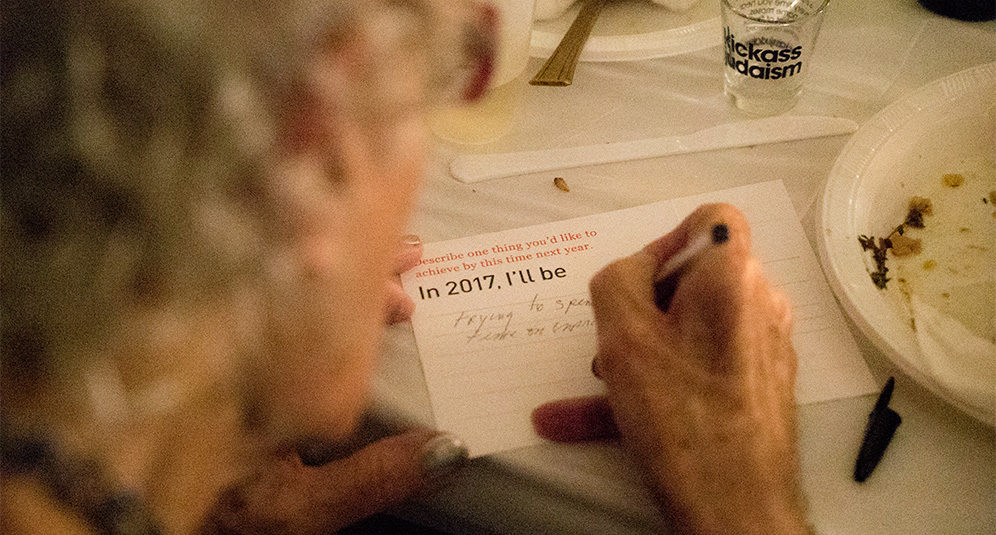 Kickass
Judaism
Describe one thing you'd like to
achieve by this time next year.
In 2017, I'll be
trying to
time on